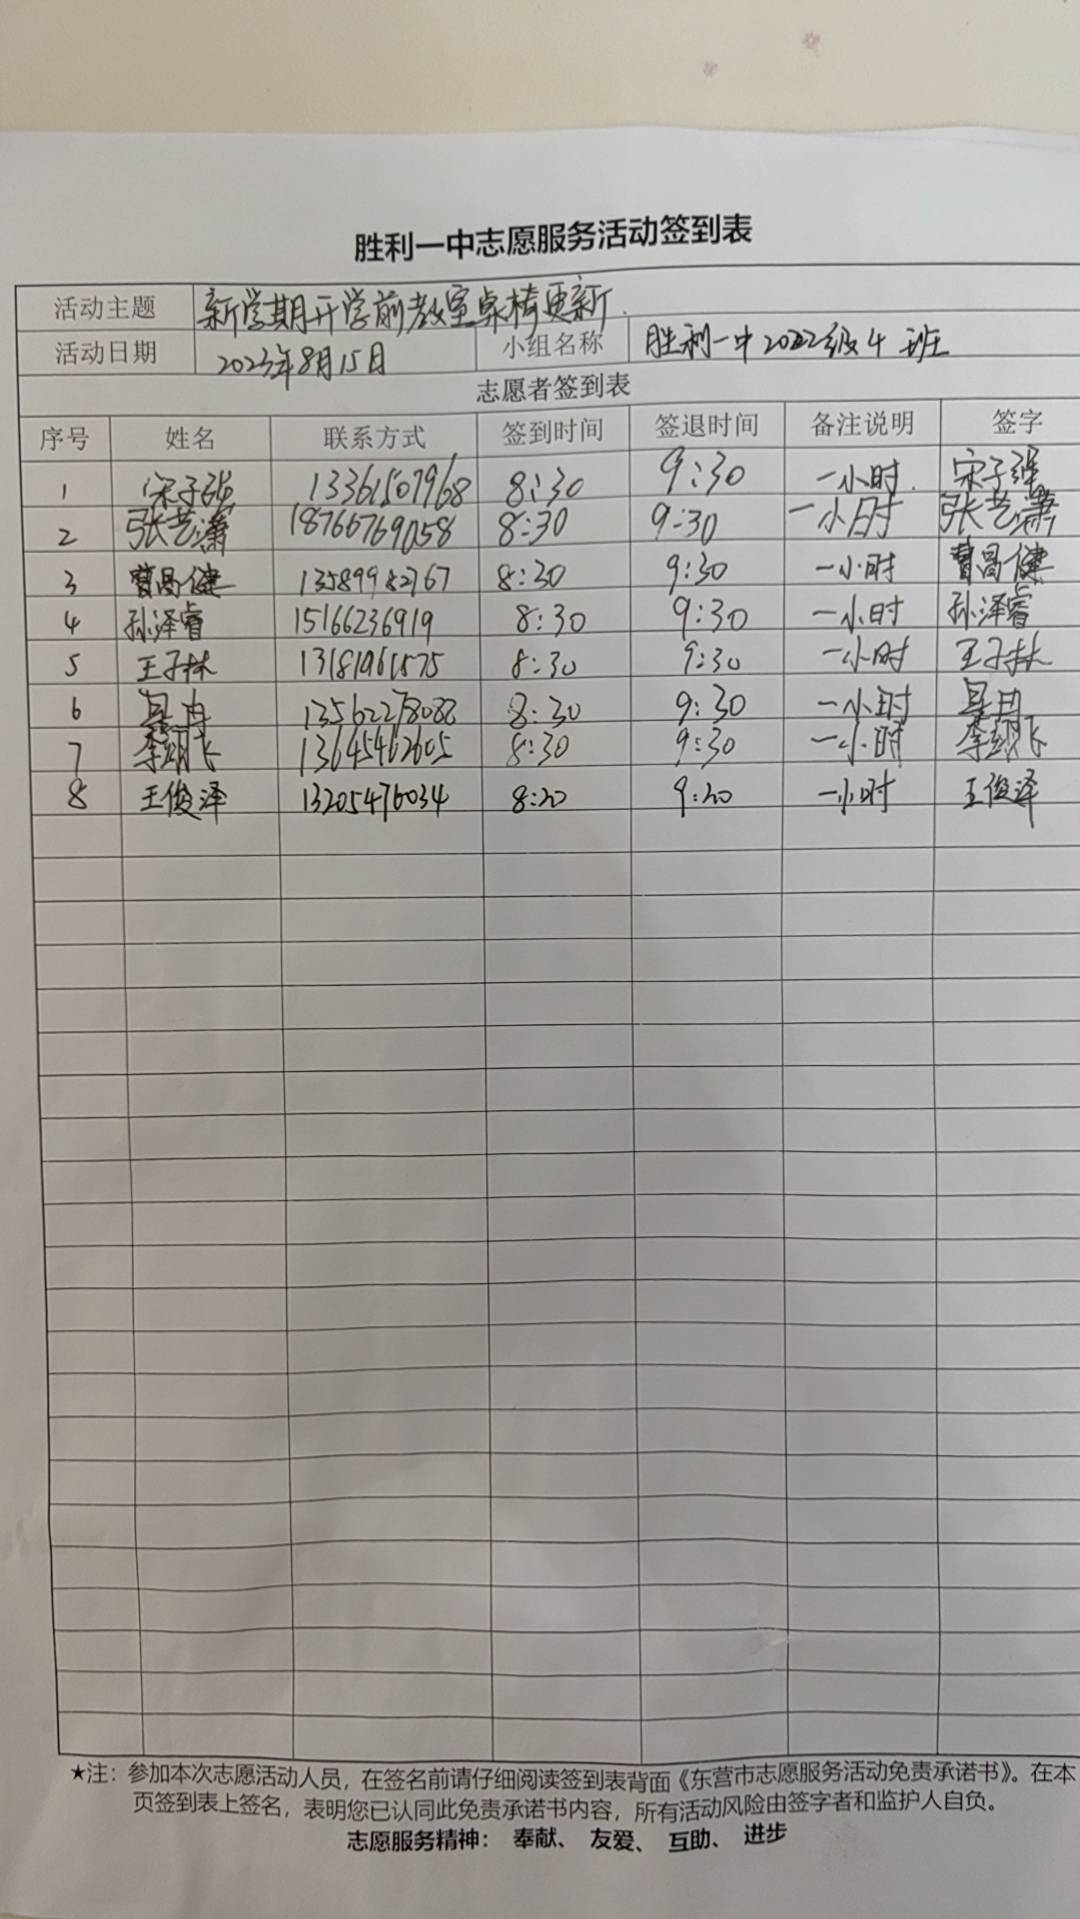 胜利一中志愿服务活动签到表
活动主题 新学期开学前教室桌椅更新
活动日期 2023年8月15日 小组名称 胜利一中2022级4班
志愿者签到表
序号 姓名 联系方式 签到时间 签退时间 备注说明 签字
1 宋子强 13361507968 8:30 9:30 一小时. 宋子强
2 张艺潇 18766769058 8:30 9:30 一小时 张艺潇
3 曹昌健 13589982767 8:30 9:30 一小时 曹昌健
4 孙泽睿 15166236919 8:30 9:30 一小时 孙泽睿
5 王子林 13181961575 8:30 9:30 一小时 王子林
6 13562278088 8:30 9:30 一小时
7 13645462605 8:30 9:30 一小时
8 王俊泽 13205476034 8:30 9:30 一小时 王俊泽
★注：参加本次志愿活动人员，在签名前请仔细阅读签到表背面《东营市志愿服务活动免责承诺书》。在本
页签到表上签名，表明您已认同此免责承诺书内容，所有活动风险由签字者和监护人自负。
志愿服务精神： 奉献、 友爱、 互助、 进步